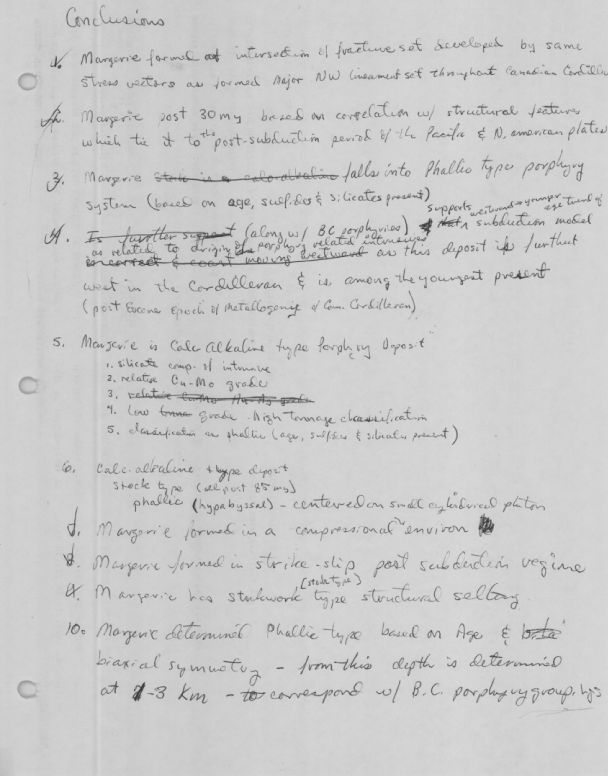 Conclusions
1. Margerie formed at intersection of fracture set developed by same
stress vectors as formed major NW lineament set throughout Canadian Cordiller
2. Margerie post 30 my based on correlation w/ structural features
which tie it to the post-subduction period of the Pacific & N. american plates
3. Margerie falls into Phallic type porphyry
system (based on age, sulfides & silicates present)
4. (along w/ BC porphyries) supports westward younger age trend of
subduction model
as related to origin of porphyry related intrusives as this deposit is further
west in the Cordilleran & is among the youngest present
(post Eocene Epoch of Metallogeny of Can. Cordilleran)
5. Margerie is Calc Alkaline type Porphyry Deposit
1. silicate comp. of intrusive
2. relative Cu-Mo grade
3. relative Cu-Mo Au-Ag grade
4. low grade - high tonnage classification
5. classification as phallic (age, sulfides & silicates present)
6. Calc. alkaline type deposit
stock type (all post 85 my)
phallic (hypabyssal) - centered on small cylindrical pluton
7. Margerie formed in a compressional environ
8. Margerie formed in strike-slip post subduction regime
9. Margerie has stockwork type structural setting
(stock type)
10. Margerie determined Phallic type based on Age &
biaxial symmetry - from this depth is determined
at -3 Km - to correspond w/ B.C. porphyry groupings